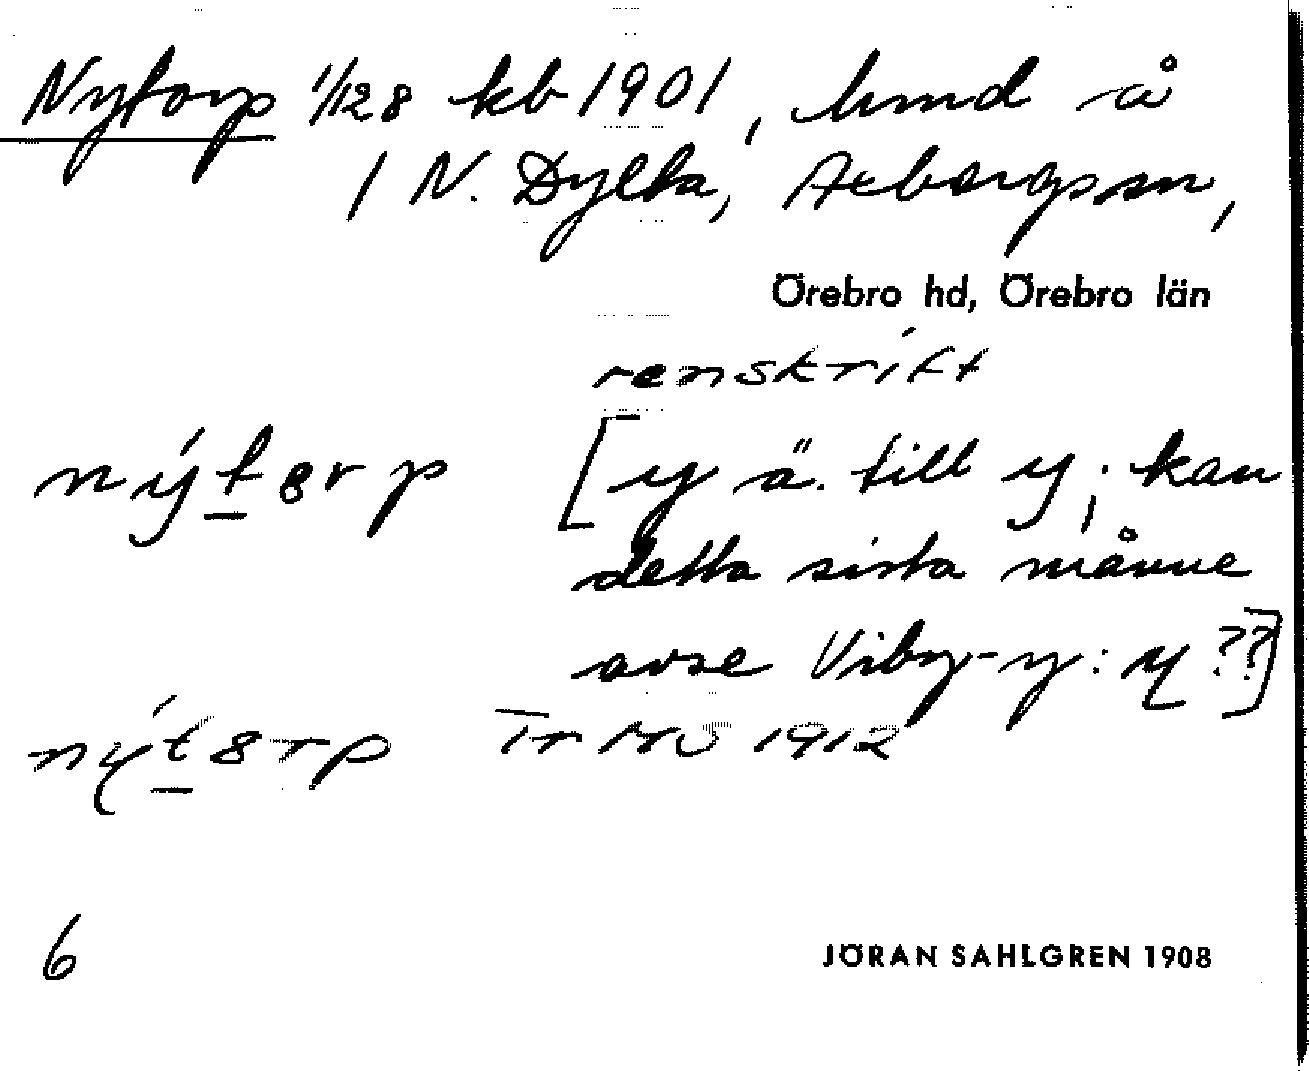 Nytorp 1/128 kb 1901, hmd å
1 N. Dylta, Axbergs sn,
Örebro hd, Örebro län
renskrift
nýt̲ɞrp [y ä. till y; kan
detta sista månne
avse Viby-y: y ??]
nýt̲ɞrp Tr MS 1912
6
JÖRAN SAHLGREN 1908